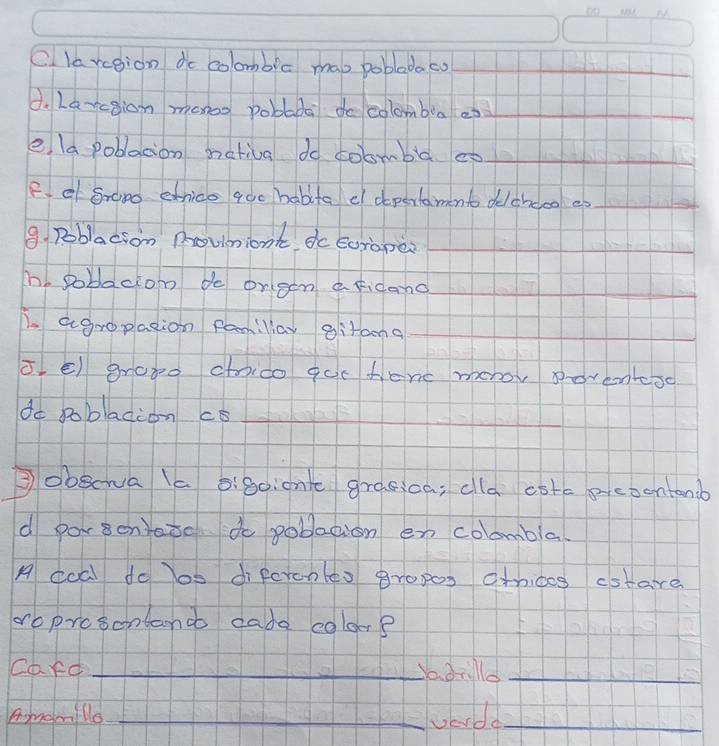 C. la region de colombia mas poblada es
d. La region menos poblada de colombia es
e. la poblacion nativa de colombia es
f. el grupo etnico que habita el departamento del choco es
g. Poblacion Proviniente de Europea
h. poblacion de origen aficano
i. agropacion familiar gitana
J. el grupo etnico que tiene menor porcentage
de poblacion es
3 observa la siguiente grafica; ella esta presentando
el porsentage de poblacion en colombia.
A cual de los diferentes gropos etnicos estara
representando cada color?
Cafe Jadrillo
Amarrillo verde